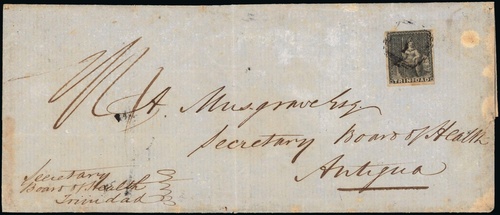 TRINIDAD
A. Musgrave Esq
Secretary Board of Health
Antigua
Secretary
Board of Health
Trinidad